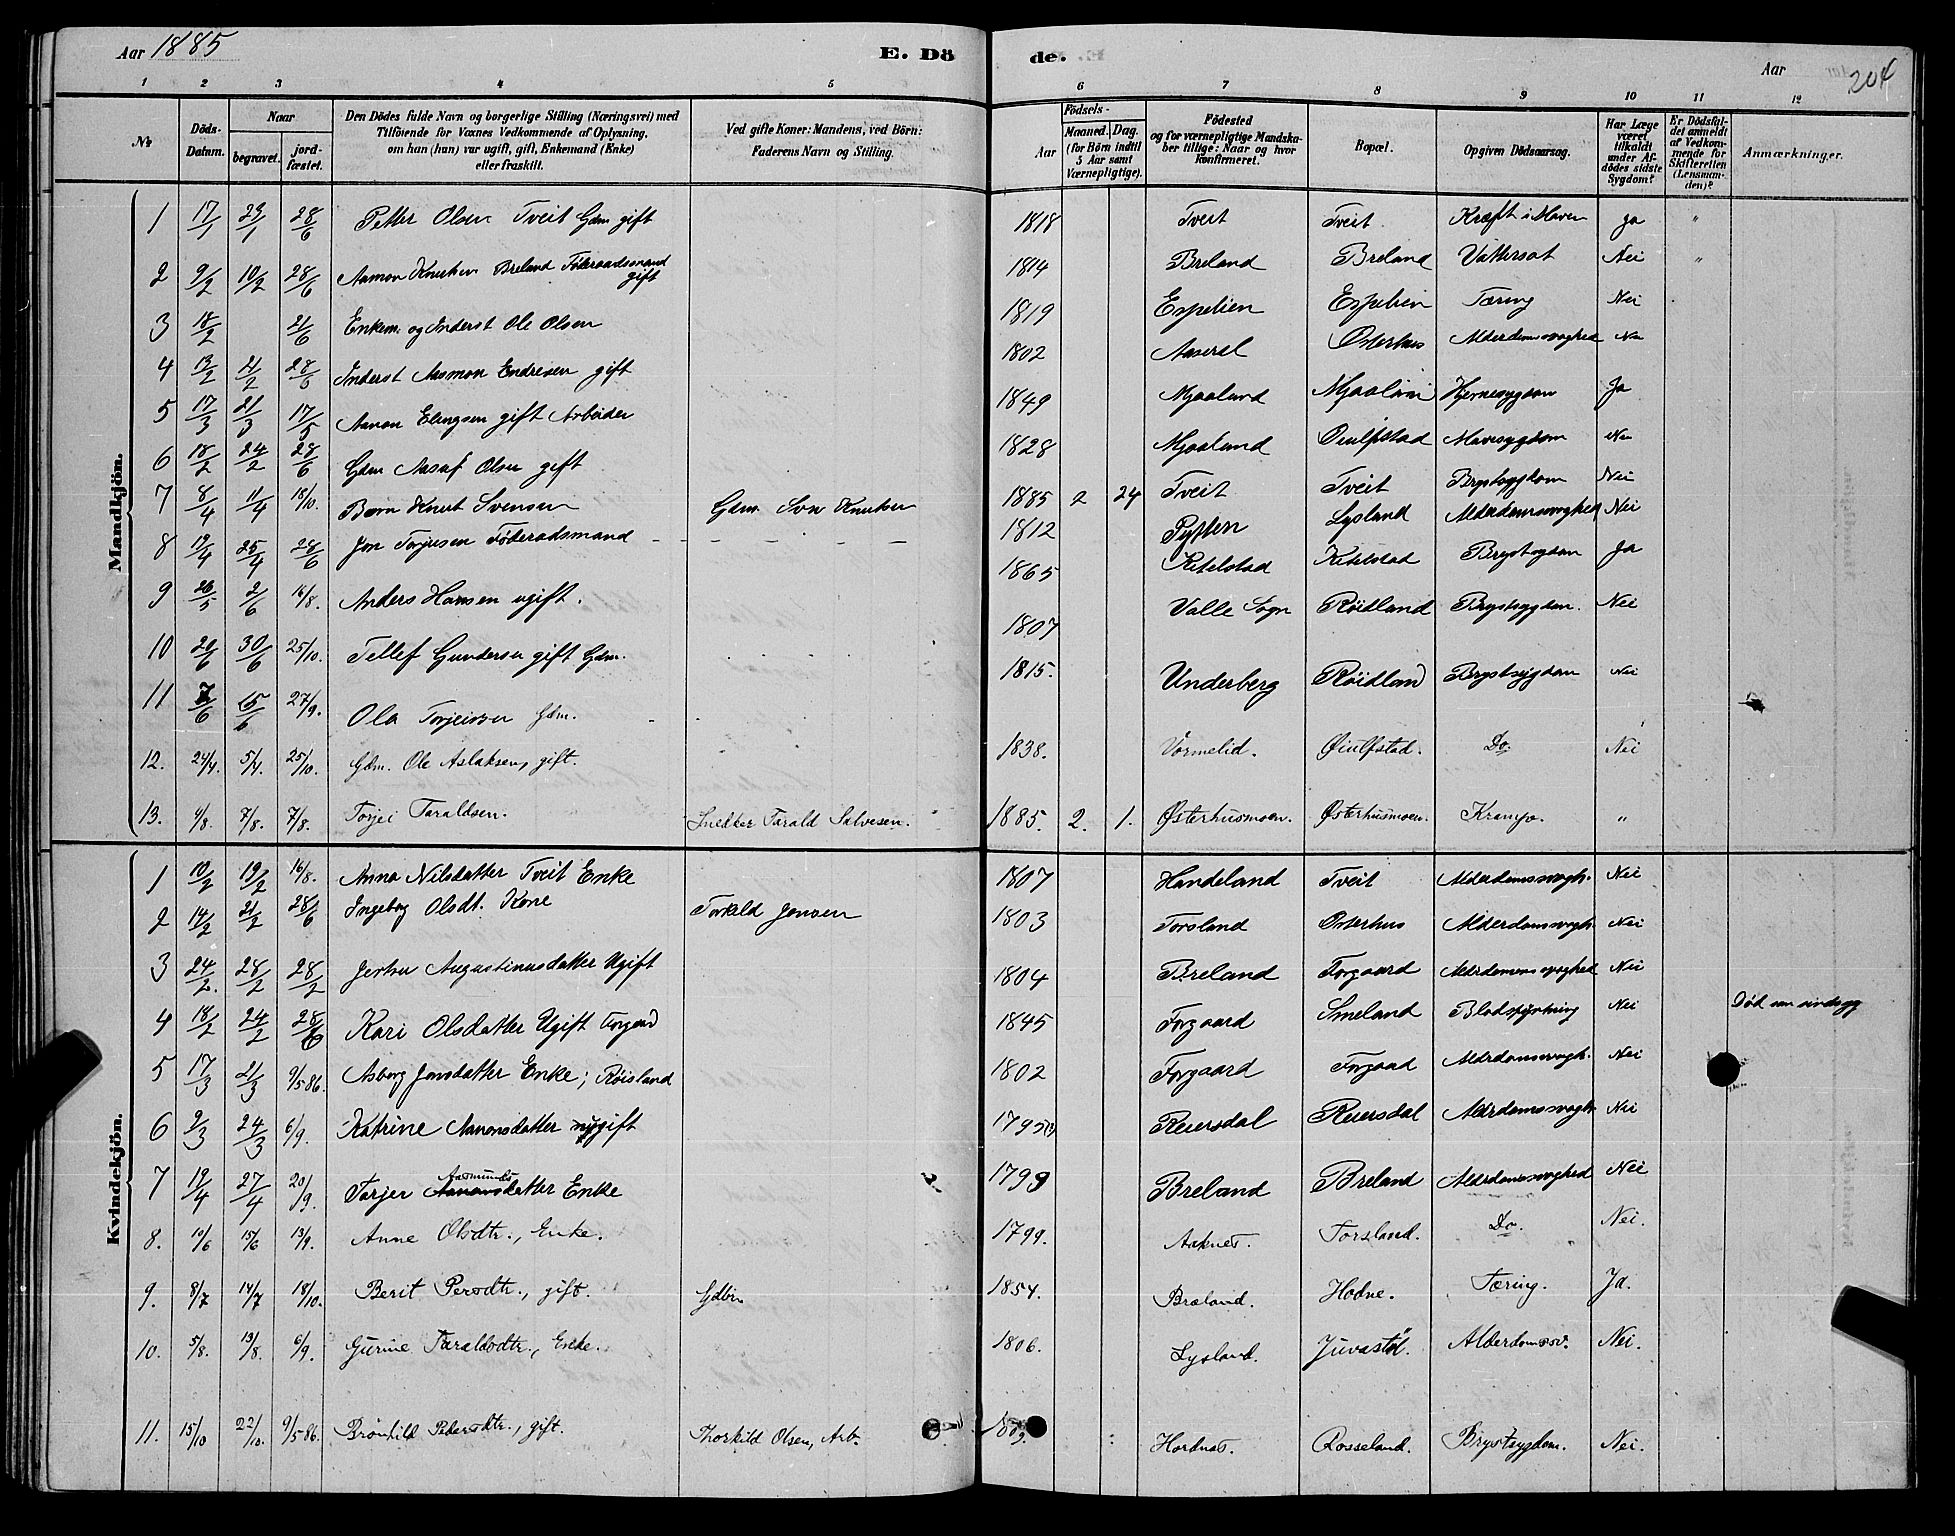 Aar 1885 E. Dö de. Aar 204
1 2 3 4 5 6 7 8 9 10 11 12
No Döds-Datum. Naar begravet. jordfæstet. Den Dödes fulde Navn og borgerlige Stilling (Næringsvei) med Tilföiende for Voxnes Vedkommende af Oplysning, om han (hun) var ugift, gift, Enkemand (Enke) eller fraskilt. Ved gifte Koner: Mandens, ved Börn: Faderens Navn og Stilling. Födsels- Aar Maaned. Dag. (for Börn indtil 5 Aar samt Værnepligtige). Födested og for værnepligtige Mandskaber tillige: Naar og hvor Konfirmeret. Bopæl. Opgiven Dödsaarsag. Har Læge været tilkaldt under Afdödes sidste Sygdom? Er Dödsfaldet anmeldt af Vedkommende for Skifteretten (Lensmanden)? Anmærkninger.
Mandkjön.
1 17/1 29/1 28/6 Petter Olsen Tveit Gdm gift 1818 Tveit Tveit Kræft i Maven Ja "
2 9/2 10/2 28/6 Aamon Knutsen Breland Föderaadsmand gift 1814 Breland Breland Vattersot Nei "
3 18/2 21/6 Enkem. og Inderst Ole Olsen 1819 Espelien Espelien Tæring Nei
4 13/2 21/2 28/6 Inderst Aamon Endresen gift 1802 Aaseral Østerhus Alderdomssvaghed Nei
5 17/3 21/3 17/5 Aanon Elingsen gift Arbeider 1849 Mjaaland Mjaaland Hjernesygdom Ja
6 18/2 24/2 28/6 Gdm Aasuf Olsen gift 1828 Mjaaland Øiulfstad Mavesygdom Nei
7 8/4 11/4 18/10. Barn Knut Svensen Gdm. Sven Knutsen 1885 2 24 Tveit Tveit Brystsygdom Nei
8 19/4 25/4 28/6 Jon Torjusen Föderaadsmand 1812 Pytten Lysland Alderdomssvaghed Nei
9 26/5 2/6 16/8. Anders Hansen ugift. 1865 Ketelstad Ketelstad Brystsygdom Ja
10 20/6 30/6 25/10. Tellef Gundersen gift Gdm. 1807 Valle Sogn Røidland Brystsygdom. Nei
11 7/6 15/6 27/9. Ola Torjeissen Gdm. 1815. Underberg Røidland Brystsygdom Nei
12. 24/4. 5/4. 25/10. Gdm. Ole Aslaksen, gift. 1838. Vormelid. Øiulfstad. Do. Nei
13. 4/8. 7/8. 7/8. Torjei Taraldsen. Snedker Tarald Salvesen. 1885. 2. 1. Østerhusmoen. Østerhusmoen. Krampe. "
Kvindekjön.
1 10/2 19/2 16/8. Anna Nilsdatter Tveit Enke 1807 Handeland Tveit Alderdomssvagh. Nei
2 14/2 21/2 28/6 Ingeborg Olsdt. Kone Torkild Jensen 1803 Torsland Østerhus Alderdomssvagh. Nei
3 24/2. 28/2 28/2 Augustinusdatter Ugift 1804 Breland Forgaard Alderdomssvaghed Nei
4 18/2 24/2 28/6 Kari Olsdatter Ugift Forgaard 1845 Forgaard Smeland Blodstyrtning Nei Död som sindssyg
5 17/3 21/3 9/5 86. Asborg Jonsdatter Enke; Røisland 1802 Forgaard Forgaad Alderdomssvagh. Nei
6 2/3 24/3 6/9. Katrine Aanonsdatter ugift Reiersdal Reiersdal Alderdomssvagh. Nei
7 19/4 27/4 20/9. Torjer Aasmundsdatter Enke 1799 Breland Breland Alderdomssvaghed Nei
8. 10/6 15/6 13/9. Anne Olsdtr., Enke. 1799. Aaknes. Torsland. Do. Nei.
9. 8/7 14/7 18/10. Berit Persdtr., gift. 1854. Breland. Hodne. Tæring. Ja.
10. 5/8. 13/8. 6/9. Gurine Taraldsdtr., Enke. 1806. Lysland. Juvastøl. Alderdomssv. Nei.
11. 15/10 22/10. 9/5 86. Brönhild Pedersdtr., gift. Thorkild Olsen, Arb. Hordnes. Rosseland. Brystsygdom. Nei.